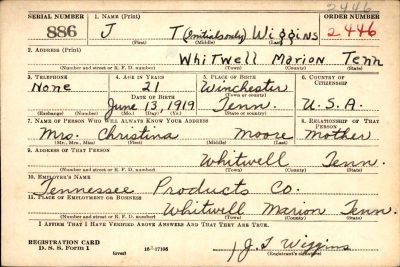 2446
SERIAL NUMBER 1. NAME (Print) ORDER NUMBER
886 J T (Initials only) Wiggins 2446
(First) (Middle) (Last)
2. ADDRESS (Print)
Whitwell Marion Tenn
(Number and street or R. F. D. number) (Town) (County) (State)
3. TELEPHONE 4. AGE IN YEARS 5. PLACE OF BIRTH 6. COUNTRY OF CITIZENSHIP
None 21 Winchester
DATE OF BIRTH (Town or county)
June 13, 1919 Tenn. U.S.A.
(Exchange) (Number) (Mo.) (Day) (Yr.) (State or country)
7. NAME OF PERSON WHO WILL ALWAYS KNOW YOUR ADDRESS 8. RELATIONSHIP OF THAT PERSON
Mrs. Christina Moore Mother
(Mr., Mrs., Miss) (First) (Middle) (Last)
9. ADDRESS OF THAT PERSON
Whitwell Tenn.
(Number and street or R. F. D. number) (Town) (County) (State)
10. EMPLOYER'S NAME
Tennessee Products Co.
11. PLACE OF EMPLOYMENT OR BUSINESS
Whitwell Marion Tenn.
(Number and street or R. F. D. number) (Town) (County) (State)
I AFFIRM THAT I HAVE VERIFIED ABOVE ANSWERS AND THAT THEY ARE TRUE.
REGISTRATION CARD
D. S. S. Form 1 (over) 16—17105 J.T. Wiggins
(Registrant's signature)